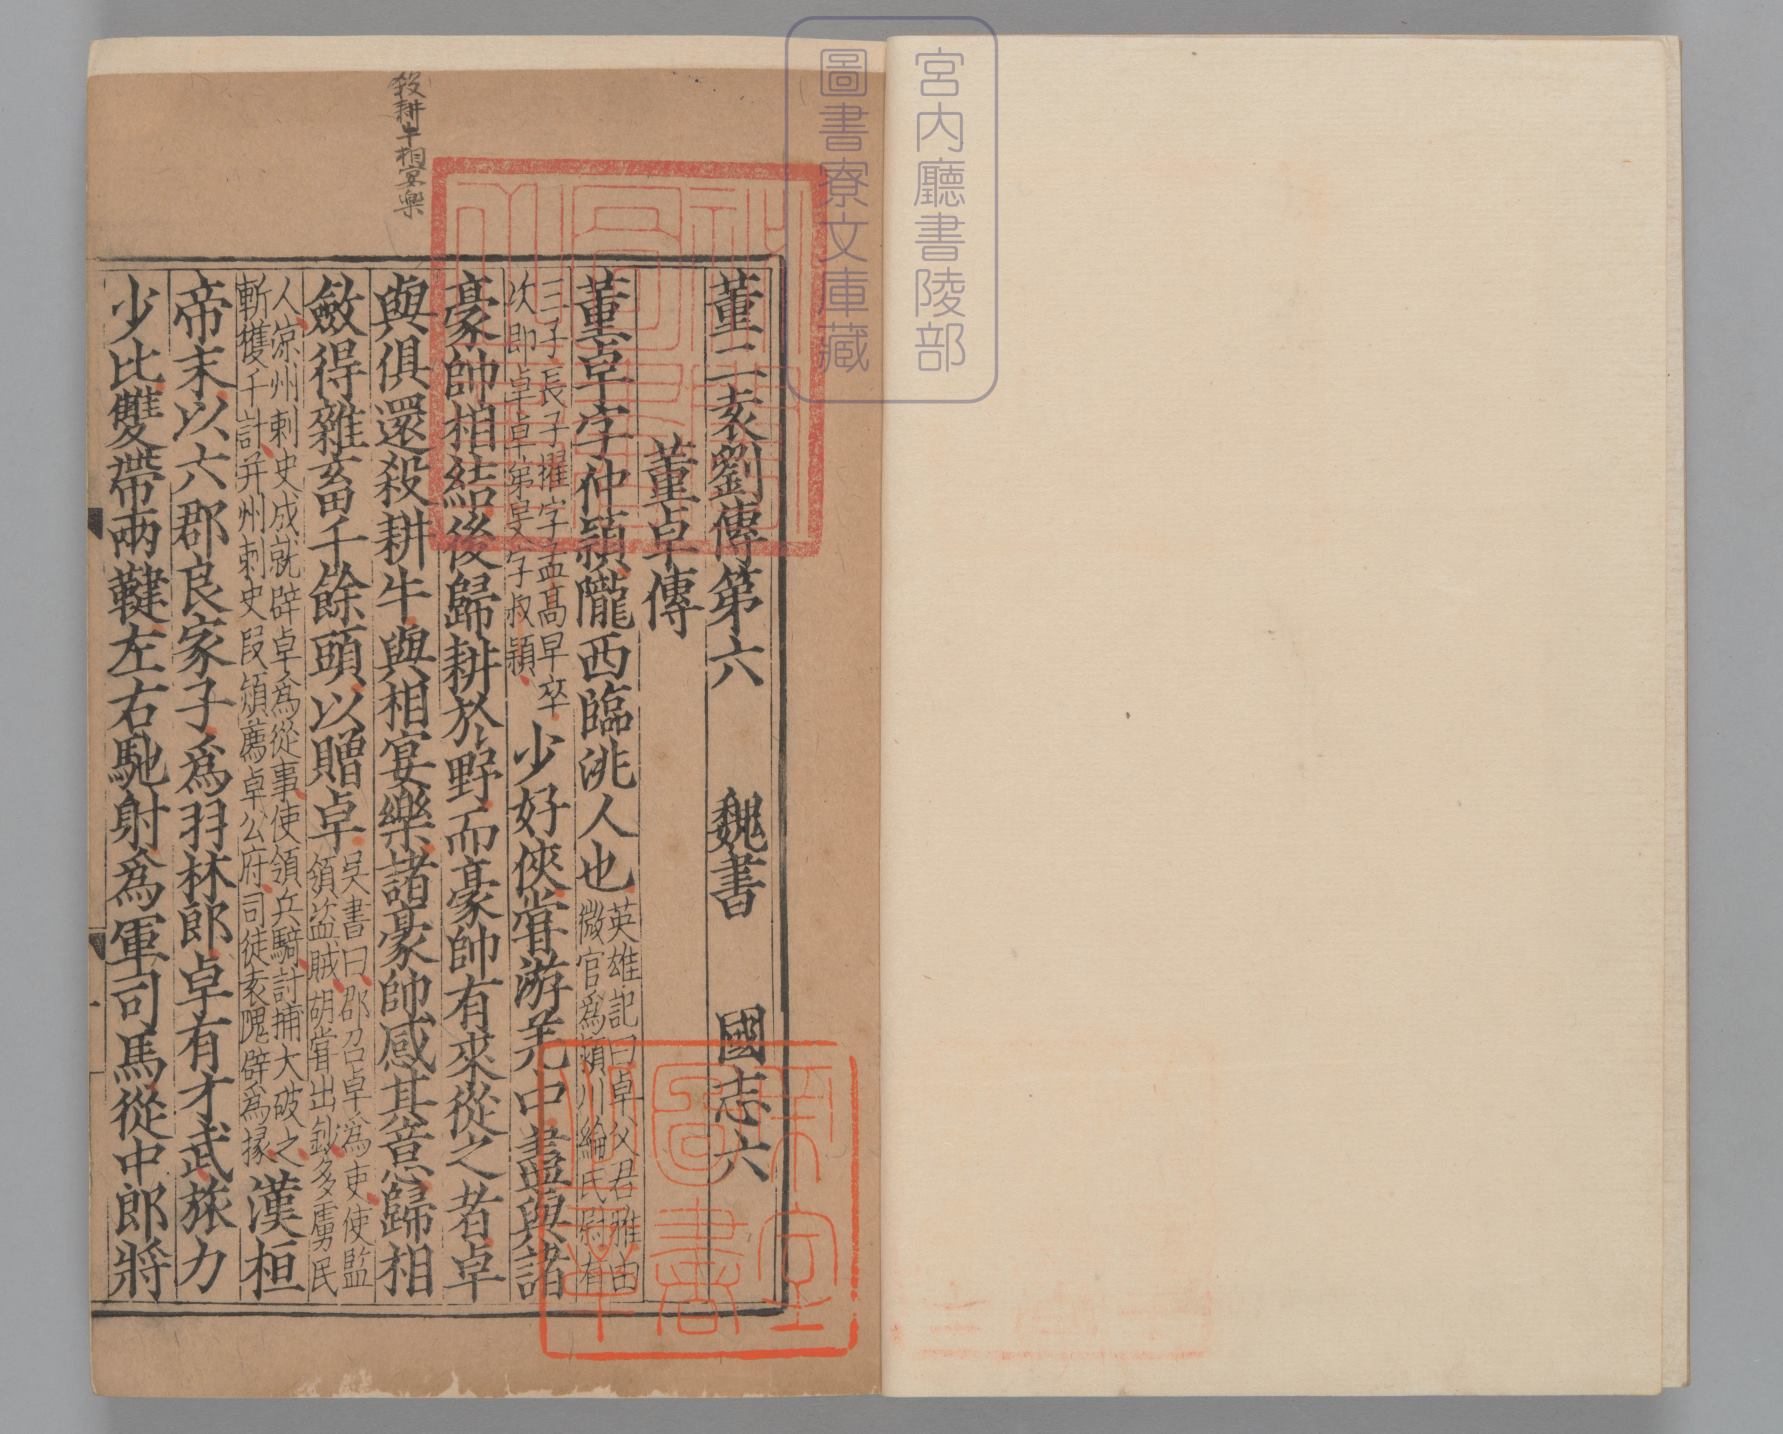 宮内廳書陵部
圖書寮文庫藏
董二袁劉傳第六 魏書 國志六
董卓傳
董卓字仲潁隴西臨洮人也英雄記曰卓父君雅由
微官爲潁川綸氏尉有
三子長子擢字孟高早卒
次即卓卓弟旻字叔潁少好俠甞游羌中盡與諸
豪帥相結後歸耕於野而豪帥有來從之者卓
與俱還殺耕牛與相宴樂諸豪帥感其意歸相
斂得雜畜千餘頭以贈卓吳書曰郡召卓爲吏使監
領盜賊胡甞出鈔多虜民
人涼州刺史成就辟卓爲從事使領兵騎討捕大破之
斬獲千計并州刺史段熲薦卓公府司徒袁隗辟爲掾漢桓
帝末以六郡良家子爲羽林郎卓有才武旅力
少比雙帶兩鞬左右馳射爲軍司馬從中郎將
殺耕牛相宴樂